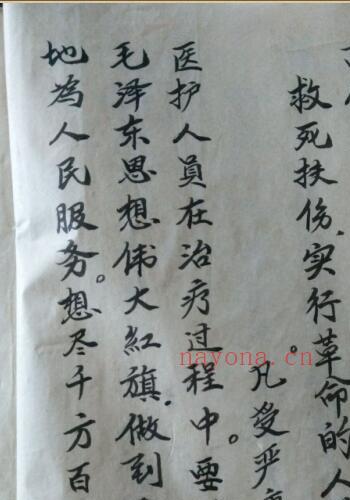 救死扶伤，实行革命的人
。凡受严
医护人員在治疗过程中。要
毛泽东思想伟大紅旗，做到
地為人民服务。想尽千方百
nayona.cn